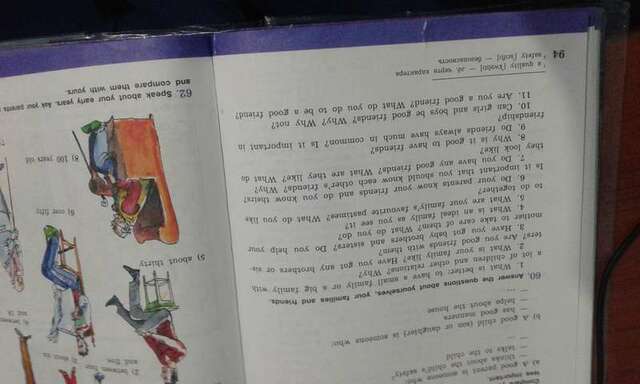 less important.
A) A good parent is someone who:
— thinks about the child's safety¹
— talks to the child
— ...
B) A good child (son or daughter) is someone who:
— has good manners
— helps about the house
— ...
60. Answer the questions about yourselves, your families and friends.
1. What is better: to have a small family or a big family with
a lot of children and other relations? Why?
2. What is your family like? Have you got any brothers or sis-
ters? Are you good friends with them?
3. Have you got baby brothers and sisters? Do you help your
mother to take care of them? What do you do?
4. What is an ideal family as you see it?
5. What are your family's favourite pastimes? What do you like
to do together?
6. Do your parents know your friends and do you know theirs?
Is it important that you should know each other's friends? Why?
7. Do you have any good friends? What are they like? What do
they look like?
8. Why is it good to have friends?
9. Do friends always have much in common? Is it important in
friendship?
10. Can girls and boys be good friends? Why? Why not?
11. Are you a good friend? What do you do to be a good friend?
a quality [ˈkwɒlɪtɪ] — зд. черта характера
safety [ˈseɪftɪ] — безопасность
94
2) between four
and five
5) about thirty
6) over fifty
8) 100 years old
62. Speak about your early years. Ask your parents
and compare them with yours.